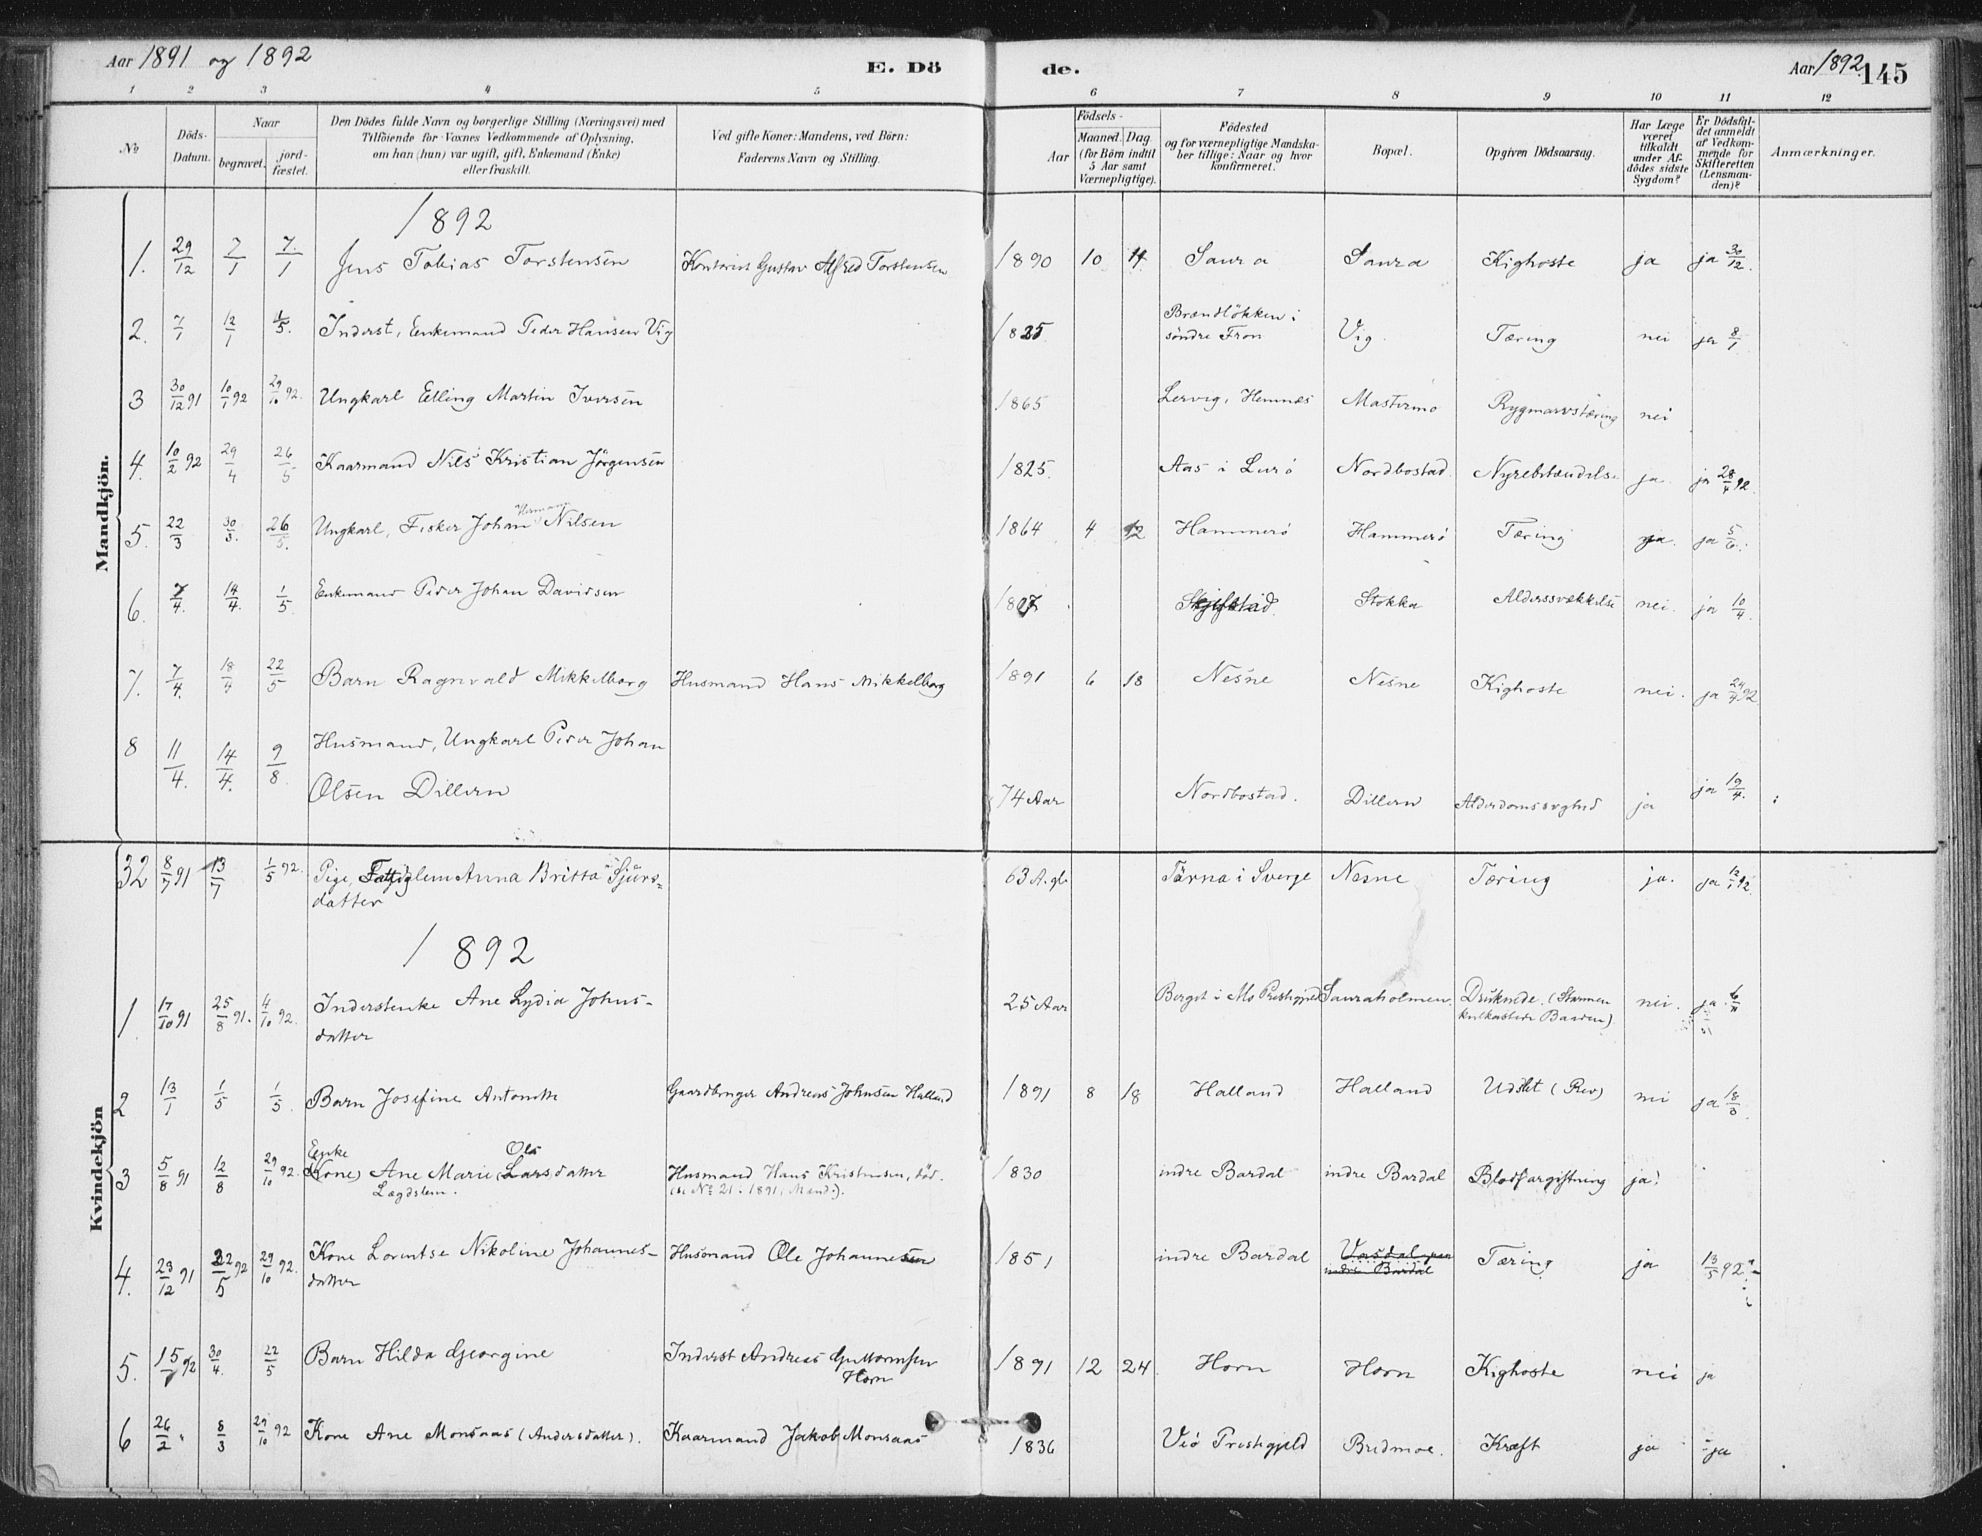 Aar 1891 og 1892
E. Döde.
Aar 1892
145
1 2 3 4 5 6 7 8 9 10 11 12
No
Döds-Datum.
Naar
begravet. jordfæstet.
Den Dödes fulde Navn og borgerlige Stilling (Næringsvei) med
Tilföiende for Voxnes Vedkommende af Oplysning,
om han (hun) var ugift, gift, Enkemand (Enke)
eller fraskilt.
Ved gifte Koner: Mandens, ved Börn:
Faderens Navn og Stilling.
Födsels-
Aar Maaned. Dag
(for Börn indtil
5 Aar samt
Værnepligtige).
Födested
og for værnepligtige Mandska-
ber tillige: Naar og hvor
konfirmeret.
Bopæl.
Opgiven Dödsaarsag.
Har Læge
været
tilkaldt
under Af-
dödes sidste
Sygdom?
Er Dödsfal-
det anmeldt
af Vedkom-
mende for
Skifteretten
(Lensman-
den)?
Anmærkninger.
Mandkjön.
1892
1. 29/12 7/1 7/1 Jens Tobias Torstensen Kontorist Gustav Alfred Torstensen 1890 10 Saura Saura Kighoste ja ja 30/12.
2. 7/1 12/1 1/5. Inderst, Enkemand Peder Hansen Vig 1825 Brændlökken i
söndre Fron Vig Tæring nei ja 8/1
3 30/12 91 10/1 92 29/10 92. Ungkarl Elling Martin Iversen 1865 Lervig, Hemnes Mastermo Rygmarvstæring nei
4. 10/2 92 29/4 26/5 Kaarmand Nils Kristian Jörgensen 1825 Aas i Lurö Nordbostad Nyrebetændelse ja ja 28/4 92.
5. 22/3 30/3. 26/5. Ungkarl, Fisker Johan Herman Nilsen 1864 4 12 Hammerö Hammerö Tæring ja. ja 5/6.
6. 7/4. 14/4. 1/5 Enkemand Peder Johan Davidsen 1807 Stokka Alderssvækkelse nei. ja 10/4.
7. 7/4. 18/4 22/5 Barn Ragnvald Mikkelborg Husmand Hans Mikkelborg 1891 6 18 Nesne Nesne Kighoste nei. ja 24/4 92
8 11/4. 14/4. 9/8. Husmand, Ungkarl Peder Johan
Olsen Dillern 74 Aar Nordbostad. Dillern Alderdomssvghed ja ja 19/4.
Kvindekjön
32 8/7 91 13/7 1/5 92. Pige, Fattiglem Anna Britta Sjurs-
datter 63 A. gl. Tärna i Sverge Nesne Tæring ja. ja 12/1 92.
1892
1. 17/10 91 25/8 91. 4/10 92. Inderstenke Ane Lydia Johns-
datter 25 Aar Berget i Mo Prestegjeld Sauraholmen Druknede. (Stormen
kulkastede Baaden) nei. ja 6/11
2 13/1 1/5 1/5. Barn Josefine Antonette Gaardbruger Andreas Johnsen Halland 1891 8 18 Halland Halland Udslet (Rev) nei ja 18/3.
3 5/8 91 12/8 29/10 92. Enke (Kone) Ane Marie Ols (Larsdatter
Lægdslem. Husmand Hans Kristensen, död.
(se No 21. 1891, Mand.). 1830 indre Bardal indre Bardal Blodforgiftning ja.
4. 23/12 91 22/5 92 29/10 92. Kone Lorentse Nikoline Johannes-
datter Husmand Ole Johannesen 1851 indre Bardal indre Bardal Tæring ja 13/5 92
5. 15/ 92 30/4. 22/5 Barn Hilda Georgine Inderst Andreas Guttormsen
Horn 1891 12 24 Horn Horn Kighoste nei ja
6 26/2 " 8/3 29/10 92 Kone Ane Monsaas (Andersdatter). Kaarmand Jakob Monsaas 1836 Vlö Prestegjeld Bredmoe. Kræft ja ja